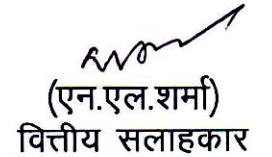 (एन.एल.शर्मा)
वित्तीय सलाहकार